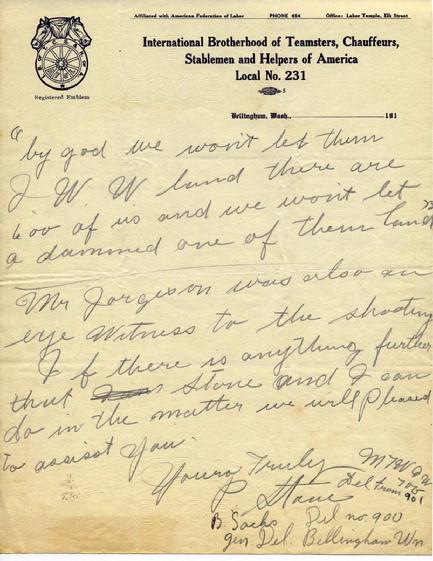 Affiliated with American Federation of Labor PHONE 684 Office: Labor Temple, Elk Street
International Brotherhood of Teamsters, Chauffeurs,
Stablemen and Helpers of America
Local No. 231
Registered Emblem
Bellingham, Wash., 191
"by god we won't let them
I W. W land there are
600 of us and we won't let
a dammed one of them land"
Mr Jorgison was also an
eye Witness to the shooting
If there is anything further
that Stone and I can
do in the matter we will Pleased
To assisst You.
Yours Truly
P Stone
Del From 901
B. Sachs Del no. 900
gen Del. Bellingham Wn